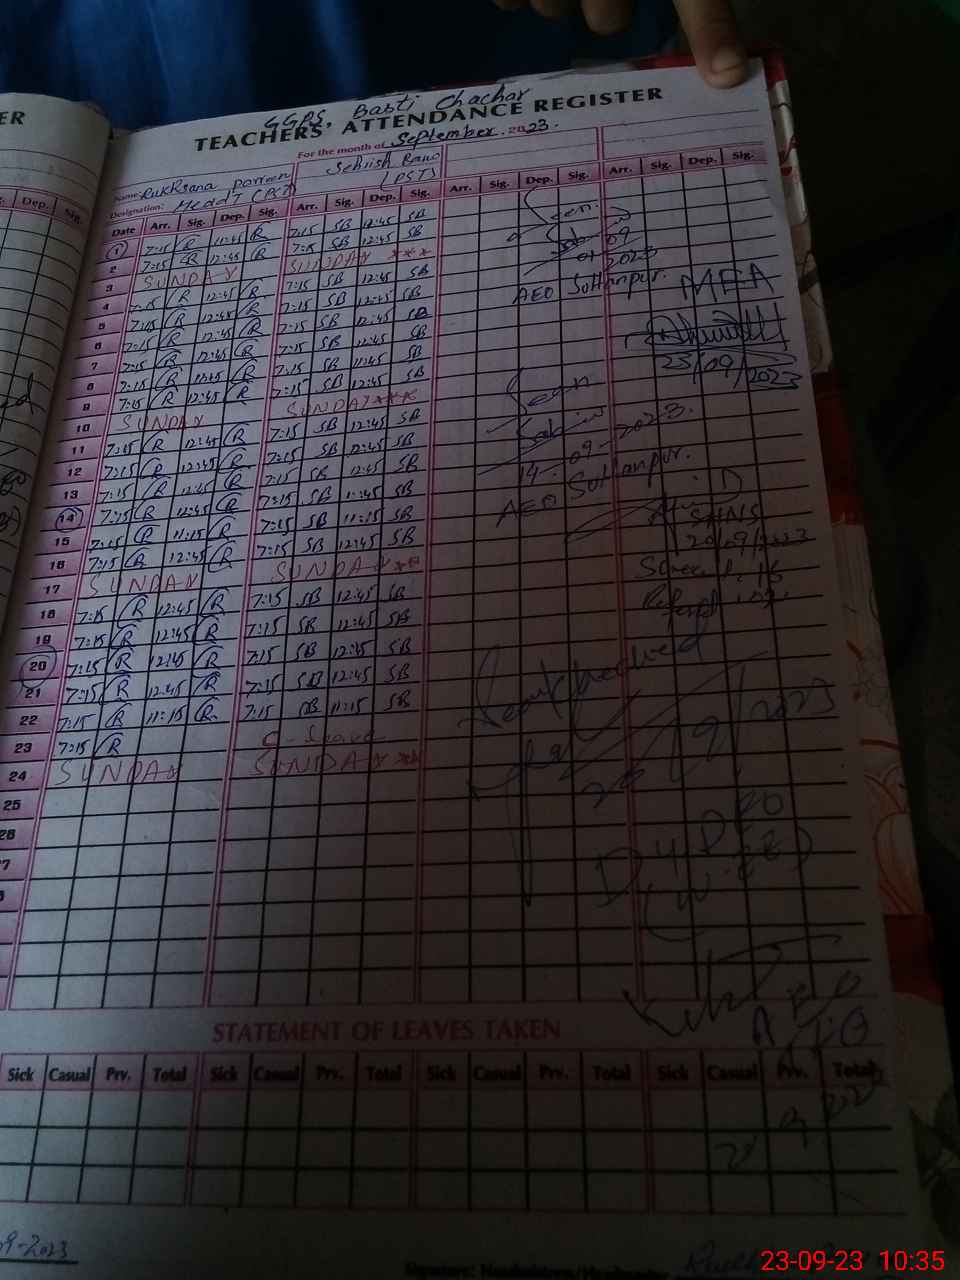 ER
GGPS, Basti Chachar
TEACHERS, ATTENDANCE REGISTER
For the month of September. 2023.
Name: Rukhsana parveen Sehrish Bano
Designation: HeadT (PST) (PST)
Dep. Sig.
Date Arr. Sig. Dep. Sig. Arr. Sig. Dep. Sig. Arr. Sig. Dep. Sig. Arr. Sig. Dep. Sig.
1 7:15 R 11:45 R 7:15 SB 12:45 SB
2 7:15 R 12:45 R 7:15 SB 12:45 SB
3 SUNDAY SUNDAY ***
4 7:15 R 12:45 R 7:15 SB 12:45 SB
5 7:15 R 12:45 R 7:15 SB 12:45 SB
6 7:15 R 12:45 R 7:15 SB 12:45 SB
7 7:15 R 12:45 R 7:15 SB 12:45 SB
8 7:15 R 11:45 R 7:15 SB 11:45 SB
9 7:15 R 12:45 R 7:15 SB 12:45 SB
10 SUNDAY SUNDAY ***
11 7:15 R 12:45 R 7:15 SB 12:45 SB
12 7:15 R 12:45 R 7:15 SB 12:45 SB
13 7:15 R 12:45 R 7:15 SB 12:45 SB
14 7:15 R 12:45 R 7:15 SB 11:45 SB
15 7:15 R 11:15 R 7:15 SB 11:15 SB
16 7:15 R 12:45 R 7:15 SB 12:45 SB
17 SUNDAY SUNDAY **
18 7:15 R 12:45 R 7:15 SB 12:45 SB
19 7:15 R 12:45 R 7:15 SB 12:45 SB
20 7:15 R 12:45 R 7:15 SB 12:45 SB
21 7:15 R 12:45 R 7:15 SB 12:45 SB
22 7:15 R 11:15 R 7:15 SB 11:15 SB
23 7:15 R C-Leave
24 SUNDAY SUNDAY **
25
26
Seen.
09
01 2023
AEO Sultanpur.
MEA
23/09/2023
Seen
14-09-2023.
AEO Sultanpur.
SHNS
20/09/2023
Screend. 16
20/9/2023
Dy DEO
(W-EE)
STATEMENT OF LEAVES TAKEN
Sick Casual Prv. Total Sick Casual Prv. Total Sick Casual Prv. Total Sick Casual Prv. Total
09-2023
23-09-23 10:35